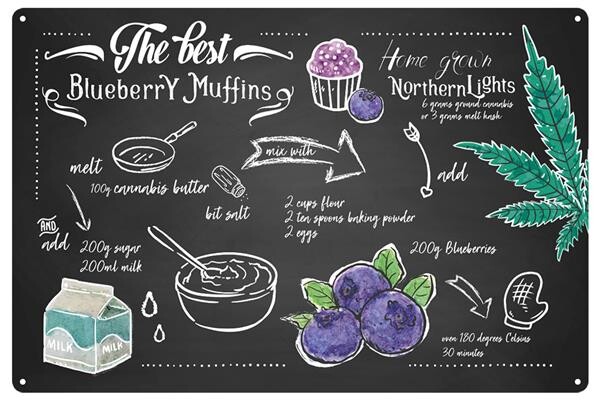 The best
Blueberry Muffins
Home grown
Northern Lights
6 grams ground cannabis
or 3 grams melt hash
melt
100g cannabis butter
bit salt
mix with
2 cups flour
2 tea spoons baking powder
2 eggs
add
AND
add
200g sugar
200ml milk
200g Blueberries
MILK
MILK
oven 180 degrees Celsius
30 minutes